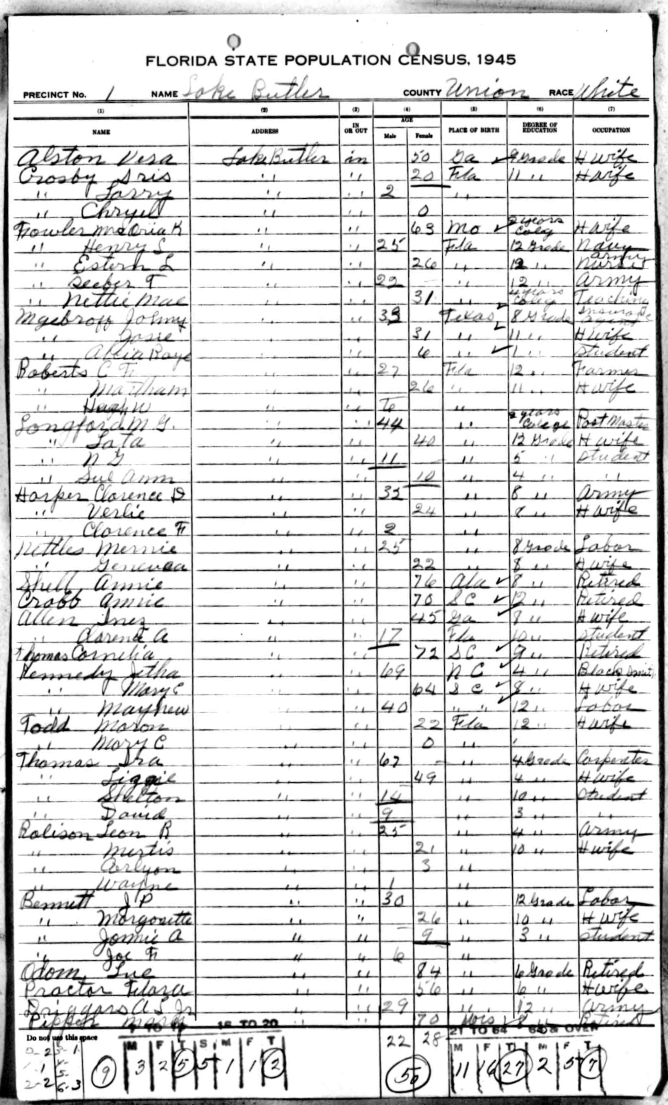 FLORIDA STATE POPULATION CENSUS, 1945
PRECINCT No. 1 NAME Lake Butler COUNTY Union RACE White
(1) (2) (3) (4) (5) (6) (7)
NAME ADDRESS IN OR OUT AGE Male Female PLACE OF BIRTH DEGREE OF EDUCATION OCCUPATION
Alston Vera Lake Butler in 50 Ga 9 Grade H wife
Crosby Iris " " 20 Fla 11 " H wife
" Larry " " 2
" Chryil " " 0
Fowler K " " 63 Mo 2 years Coleg H wife
" Henry S. " " 25 Fla 12 Grade Navy
" L " " 26 " 12 " Army Nurse
" Seeber F " " 22 " 12 " Army
" Nettie Mae " " 31 " 4 years Coleg Teaching
Johny " " 33 Texas 8 Grade Agent
" Josie " " 31 " 11 " H wife
" Raye " " 6 " 1 " Student
Roberts C F " " 27 Fla 12 " Farmer
" " " 26 " 11 " H wife
" " " 6 "
Longford M G. " " 44 " 2 years Colege Post Master
" Lata " " 40 " 12 Grade H wife
" N G " " 11 " 5 " Student
" Sue Ann " " 10 " 4 " "
Harper Clarence D " " 35 " 8 " Army
" Verlie " " 24 " 8 " H wife
" Clarence F " " 2 "
Nettles Mernie " " 25 " 8 Grade Labor
" Geneva " " 22 " 8 " H wife
Shell Annie " " 76 Ala 8 " Retired
Crabb Annie " " 70 S C 12 " Retired
Allen Inez " " 45 Ga 8 " H wife
" Clarence A " " 17 Fla 10 " Student
Thomas Cornelia " " 72 S C 9 " Retired
Kennedy Jetha " " 69 N C 4 " Black Smith
" Mary E " " 64 S C 8 " H wife
" Mayhew " " 40 " " 12 " Labor
Todd Maron " " 22 Fla 12 " H wife
" Mary C " " 0 "
Thomas Ira " " 67 " 4 Grade Carpenter
" Liggie " " 49 " 4 " H wife
" Shelton " " 14 " 10 " Student
" David " " 9 " 3 " "
Rolison Leon R " " 25 " 4 " Army
" Mertis " " 21 " 10 " H wife
" Carlyon " " 3 "
" Wayne " " 1 "
Bennett J P " " 30 " 12 Grade Labor
" Morgouette " " 26 " 10 " H wife
" Jonnie A " " 9 " 3 " Student
" Joe F " " 6 "
Odom Sue " " 84 " 6 Grade Retired
Proctor " " 56 " 6 " H wife
Driggars A S Jr " " 29 " 12 " Army
70 8 " Retired
Do not use this space 15 TO 20 22 28 21 TO 64 65 & OVER
M F T S M F T M F T M F T
9 3 2 5 5 1 1 2 50 11 16 27 2 5 7